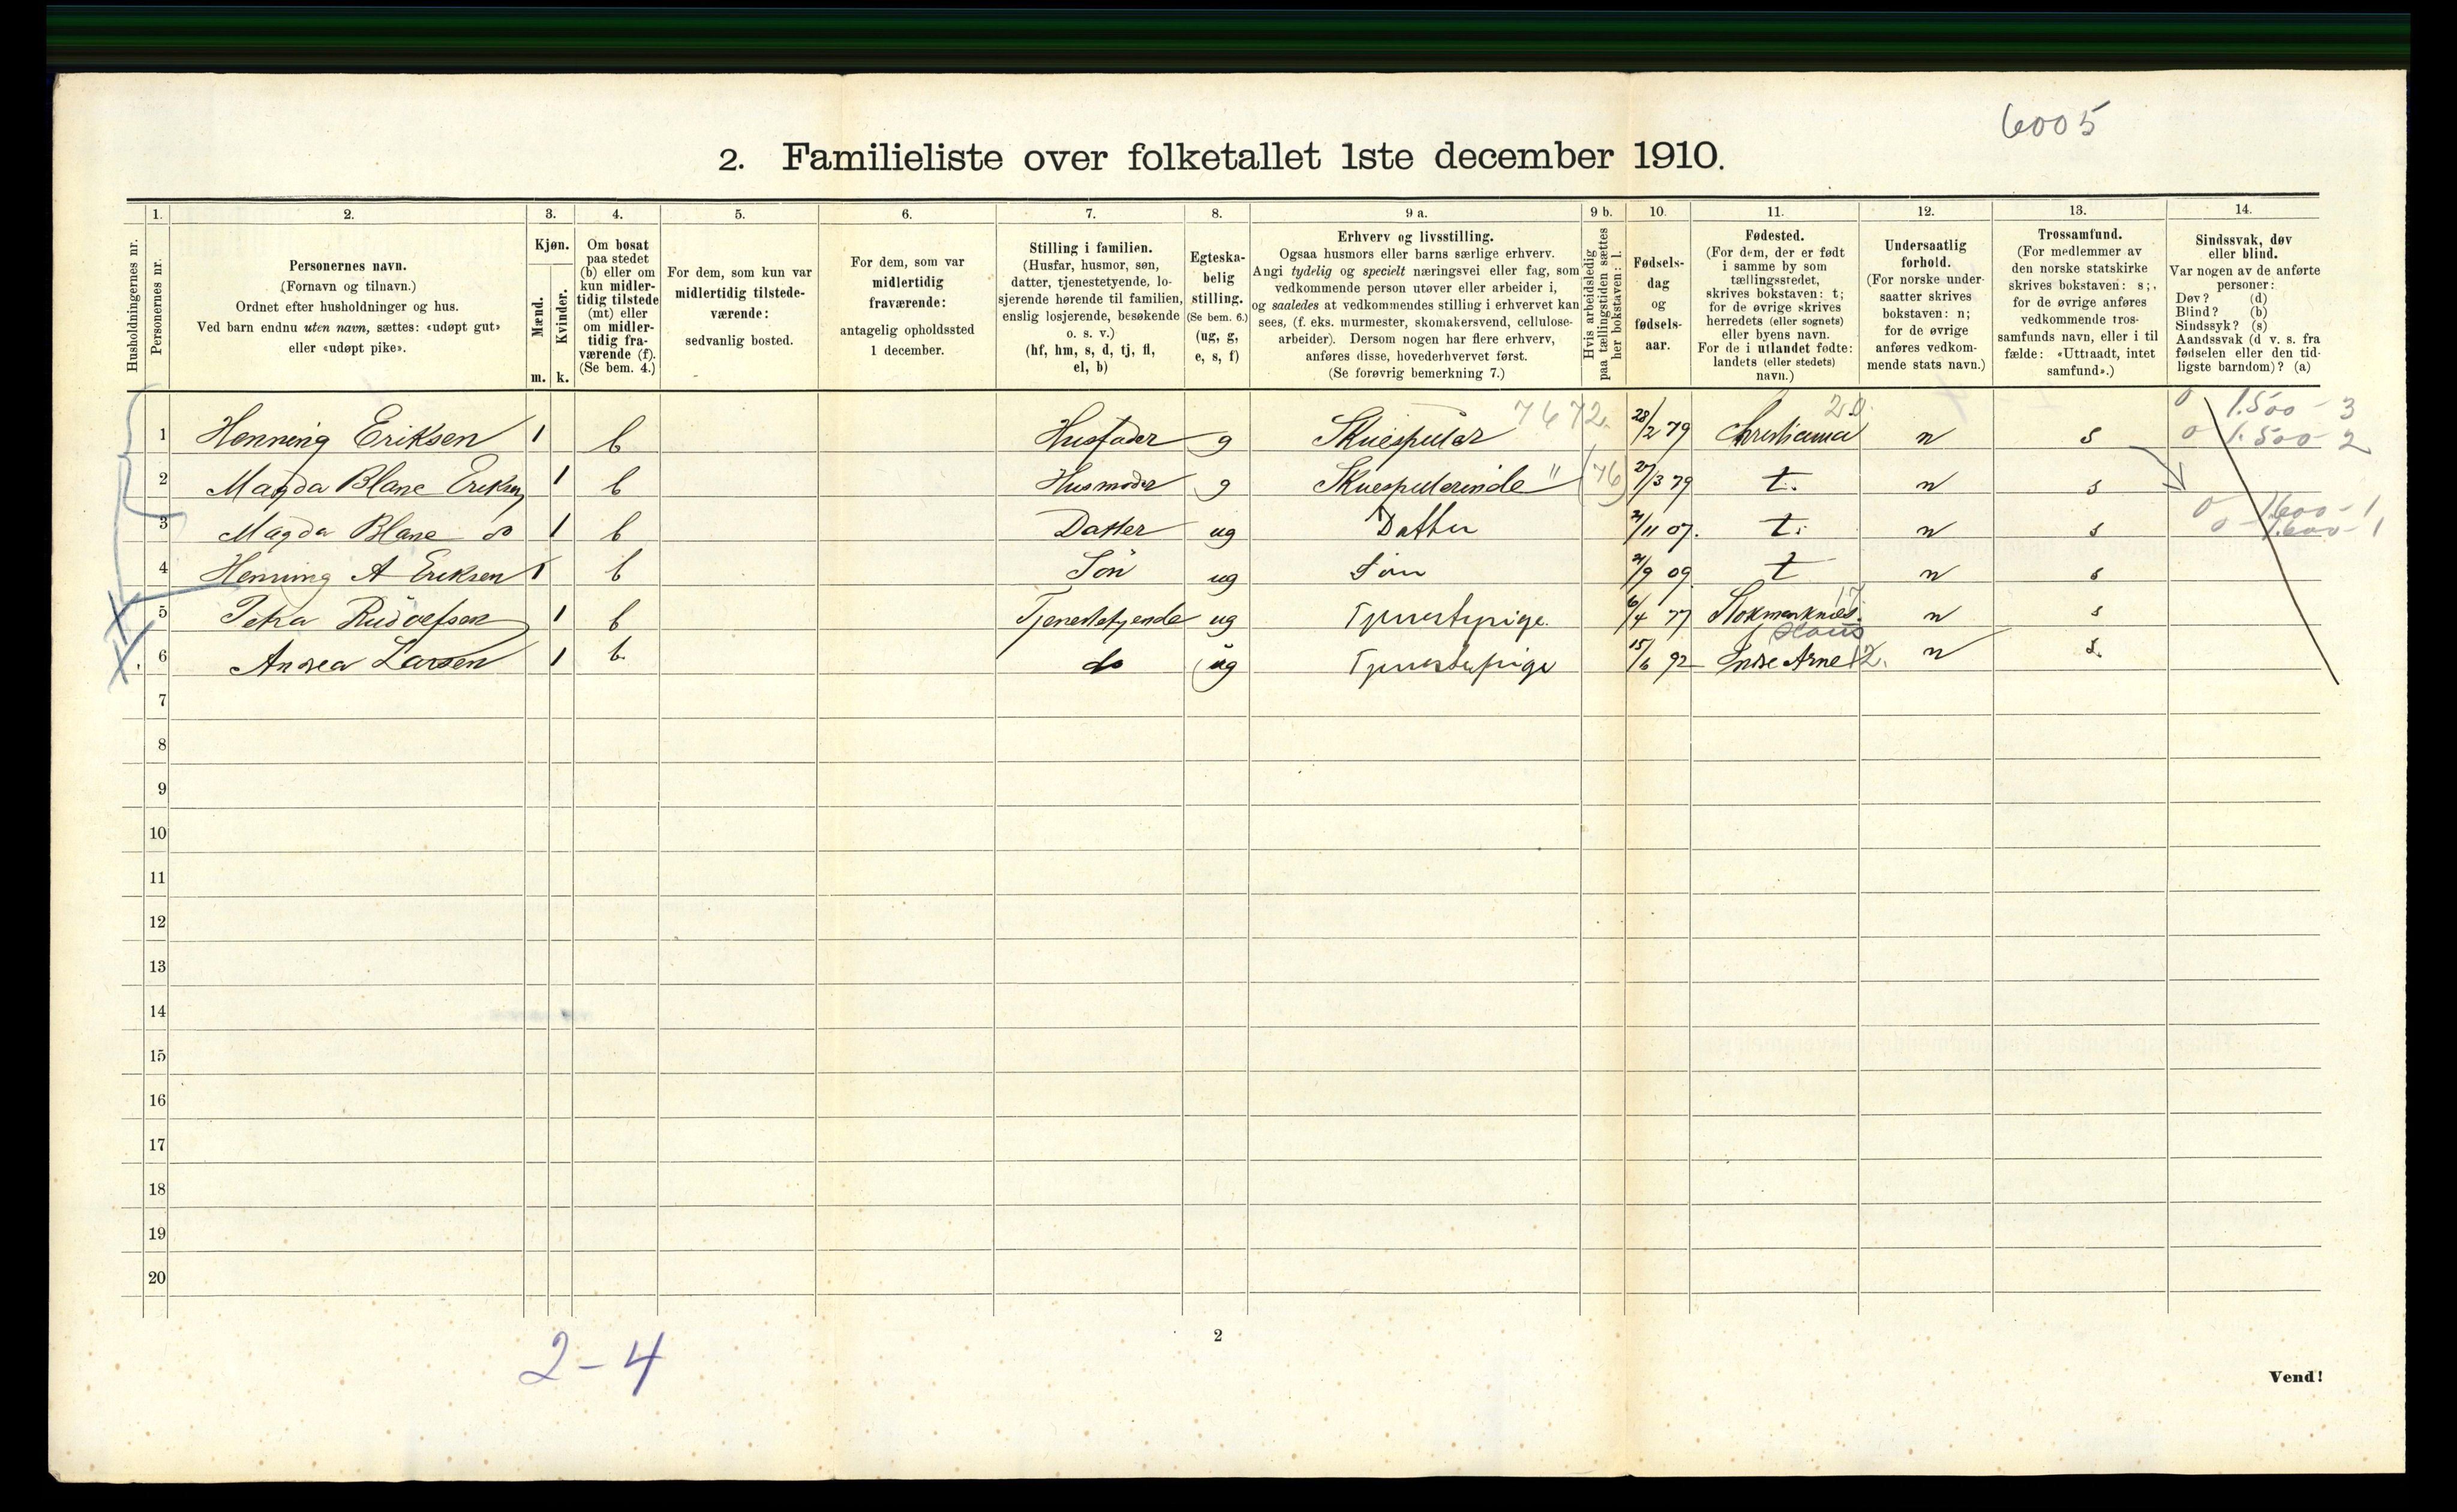 6005
2. Familieliste over folketallet 1ste december 1910.
Husholdningernes nr.
1.
Personernes nr.
2.
Personernes navn.
(Fornavn og tilnavn.)
Ordnet efter husholdninger og hus.
Ved barn endnu uten navn, sættes: «udøpt gut»
eller «udøpt pike».
3.
Kjøn.
Mænd.
Kvinder.
m. k.
4.
Om bosat
paa stedet
(b) eller om
kun midler-
tidig tilstede
(mt) eller
om midler-
tidig fra-
værende (f).
(Se bem. 4.)
5.
For dem, som kun var
midlertidig tilstede-
værende:
sedvanlig bosted.
6.
For dem, som var
midlertidig
fraværende:
antagelig opholdssted
1 december.
7.
Stilling i familien.
(Husfar, husmor, søn,
datter, tjenestetyende, lo-
sjerende hørende til familien,
enslig losjerende, besøkende
o. s. v.)
(hf, hm, s, d, tj, fl,
el, b)
8.
Egteska-
belig
stilling.
(Se bem. 6.)
(ug, g,
e, s, f)
9 a.
Erhverv og livsstilling.
Ogsaa husmors eller barns særlige erhverv.
Angi tydelig og specielt næringsvei eller fag, som
vedkommende person utøver eller arbeider i,
og saaledes at vedkommendes stilling i erhvervet kan
sees, (f. eks. murmester, skomakersvend, cellulose-
arbeider). Dersom nogen har flere erhverv,
anføres disse, hovederhvervet først.
(Se forøvrig bemerkning 7.)
9 b.
Hvis arbeidsledig
paa tællingstiden sættes
her bokstaven: l.
10.
Fødsels-
dag
og
fødsels-
aar.
11.
Fødested.
(For dem, der er født
i samme by som
tællingsstedet,
skrives bokstaven: t;
for de øvrige skrives
herredets (eller sognets)
eller byens navn.
For de i utlandet fødte:
landets (eller stedets)
navn.)
12.
Undersaatlig
forhold.
(For norske under-
saatter skrives
bokstaven: n;
for de øvrige
anføres vedkom-
mende stats navn.)
13.
Trossamfund.
(For medlemmer av
den norske statskirke
skrives bokstaven: s;,
for de øvrige anføres
vedkommende tros-
samfunds navn, eller i til
fælde: «Uttraadt, intet
samfund».)
14.
Sindssvak, døv
eller blind.
Var nogen av de anførte
personer:
Døv? (d)
Blind? (b)
Sindssyk? (s)
Aandssvak (d v. s. fra
fødselen eller den tid-
ligste barndom)? (a)
7672. 20. 0 1.500 - 3
1 Henning Eriksen 1 b Husfader g Skuespiller 28/2 79 Christiania n s 0 1.500 - 2
2 Magda Blanc Eriksen 1 b Husmoder g Skuespillerinde " (76) 27/3 79 t. n s
0 1.600 - 1
3 Magda Blanc do 1 b Datter ug Datter 21/11 07. t. n s 0 1.600 - 1
4 Henning A Eriksen 1 b Søn ug Søn 21/9 09 t n s
5 Petra Rudolfsen 1 b Tjenestetyende ug Tjenestepige. 6/4 77 Stokmarknes. 17 n s
6 Andrea Larsen 1 b. do ug Tjenestepige 15/6 92 Indre Arne 12. n s.
7
8
9
10
11
12
13
14
15
16
17
18
19
20
2
2-4
Vend!